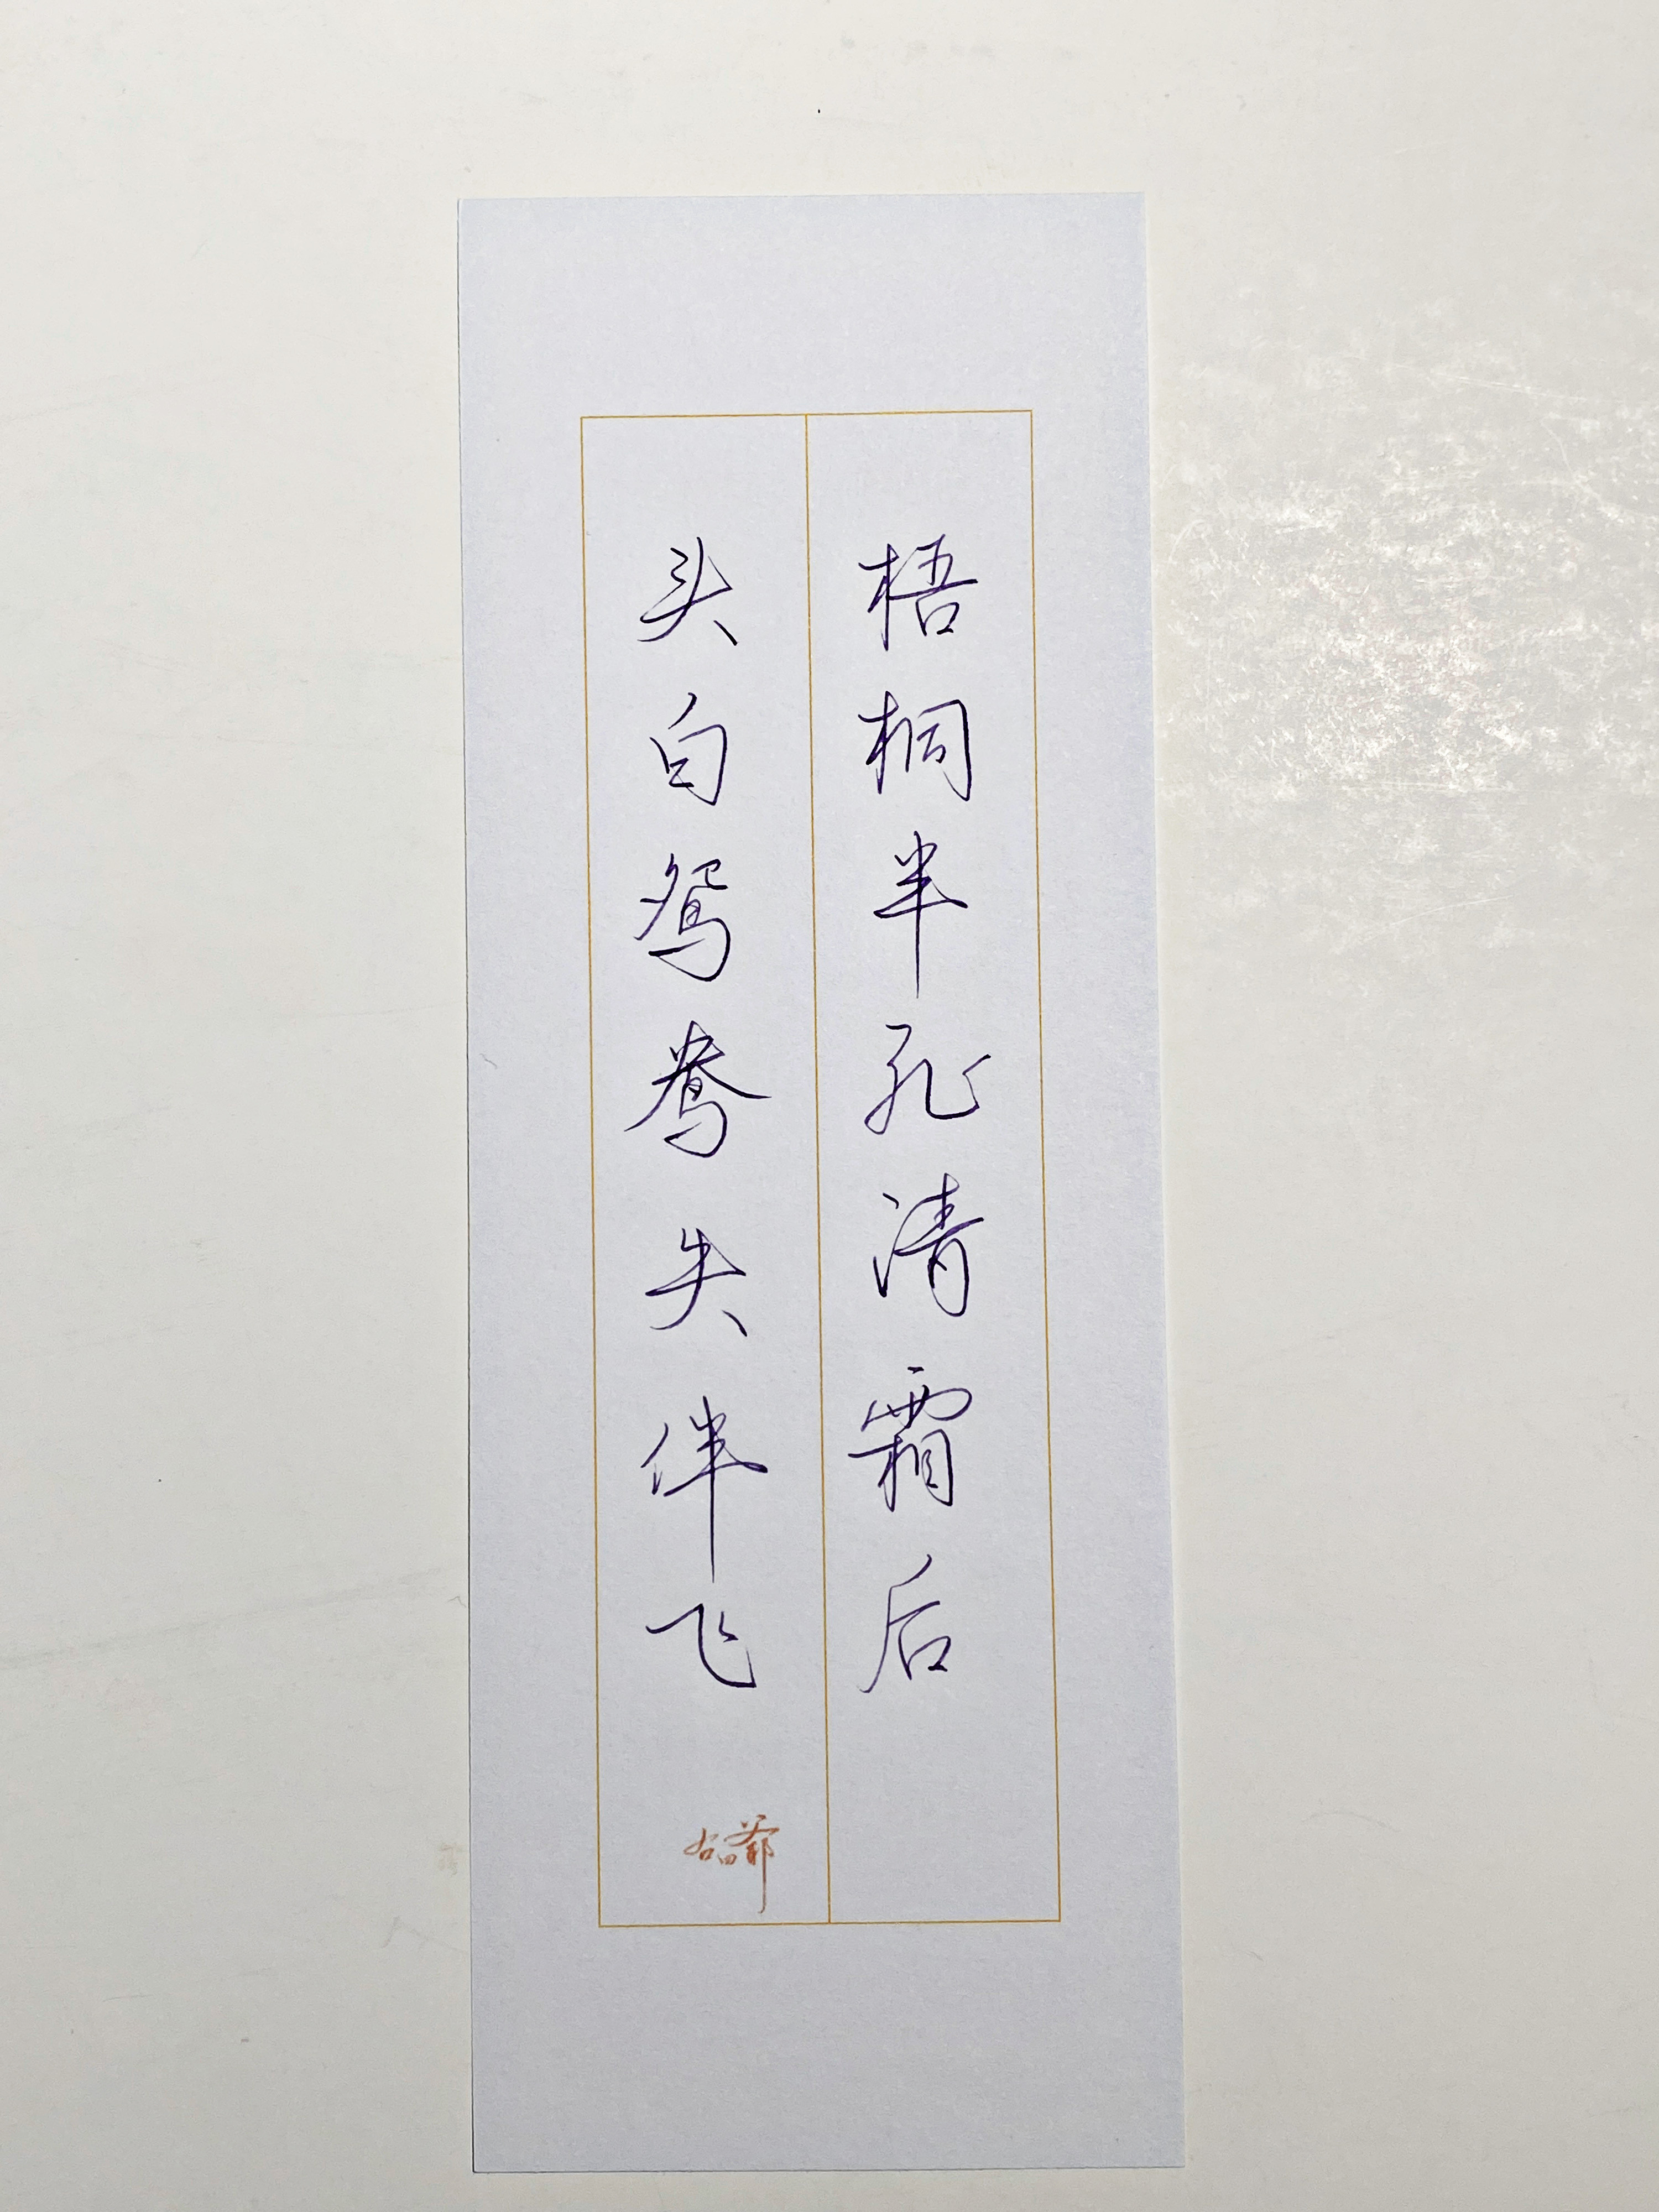 梧桐半死清霜后
头白鸳鸯失伴飞